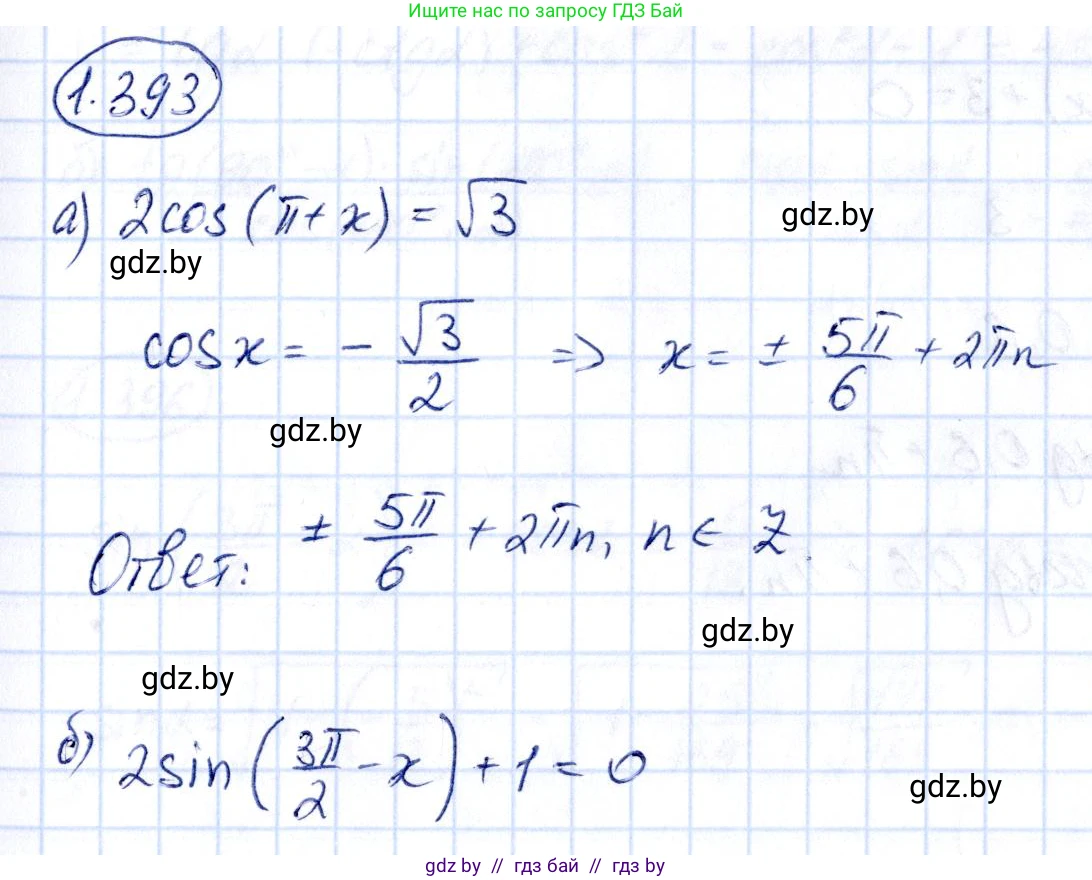 Ищите нас по запросу ГДЗ Бай
1.393
а) 2cos(π+x) = √3
gdz.by
gdz.by
cosx = - √3/2 => x = ± 5π/6 + 2πn
gdz.by
Ответ: ± 5π/6 + 2πn, n ∈ Z.
gdz.by
gdz.by
б) 2sin(3π/2 - x) + 1 = 0
gdz.by
gdz by // гдз бай // гдз by